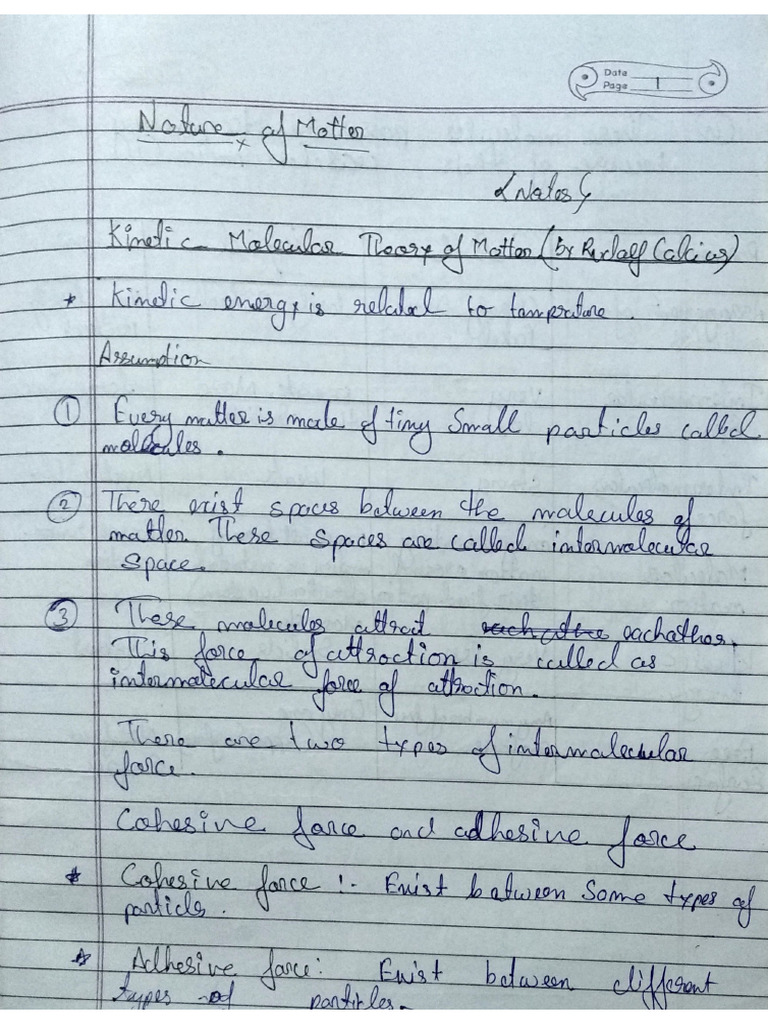 Date
Page 1
Nature of Matter
Notes
Kinetic Molecular Theory of Matter (By Rudolf Calcius)
* Kinetic energy is related to temprature.
Assumption
① Every matter is made of tiny small particles called
molecules.
② There exist spaces between the molecules of
matter. These spaces are called intermolecular
space.
③ These molecules attract each othe eachother.
This force of attraction is called as
intermolecular force of attraction.
There are two types of intermolecular
force.
Cohesive force and adhesive force
* Cohesive force :- Exist between Same types of
particle.
* Adhesive force: Exist between different
types of particles.